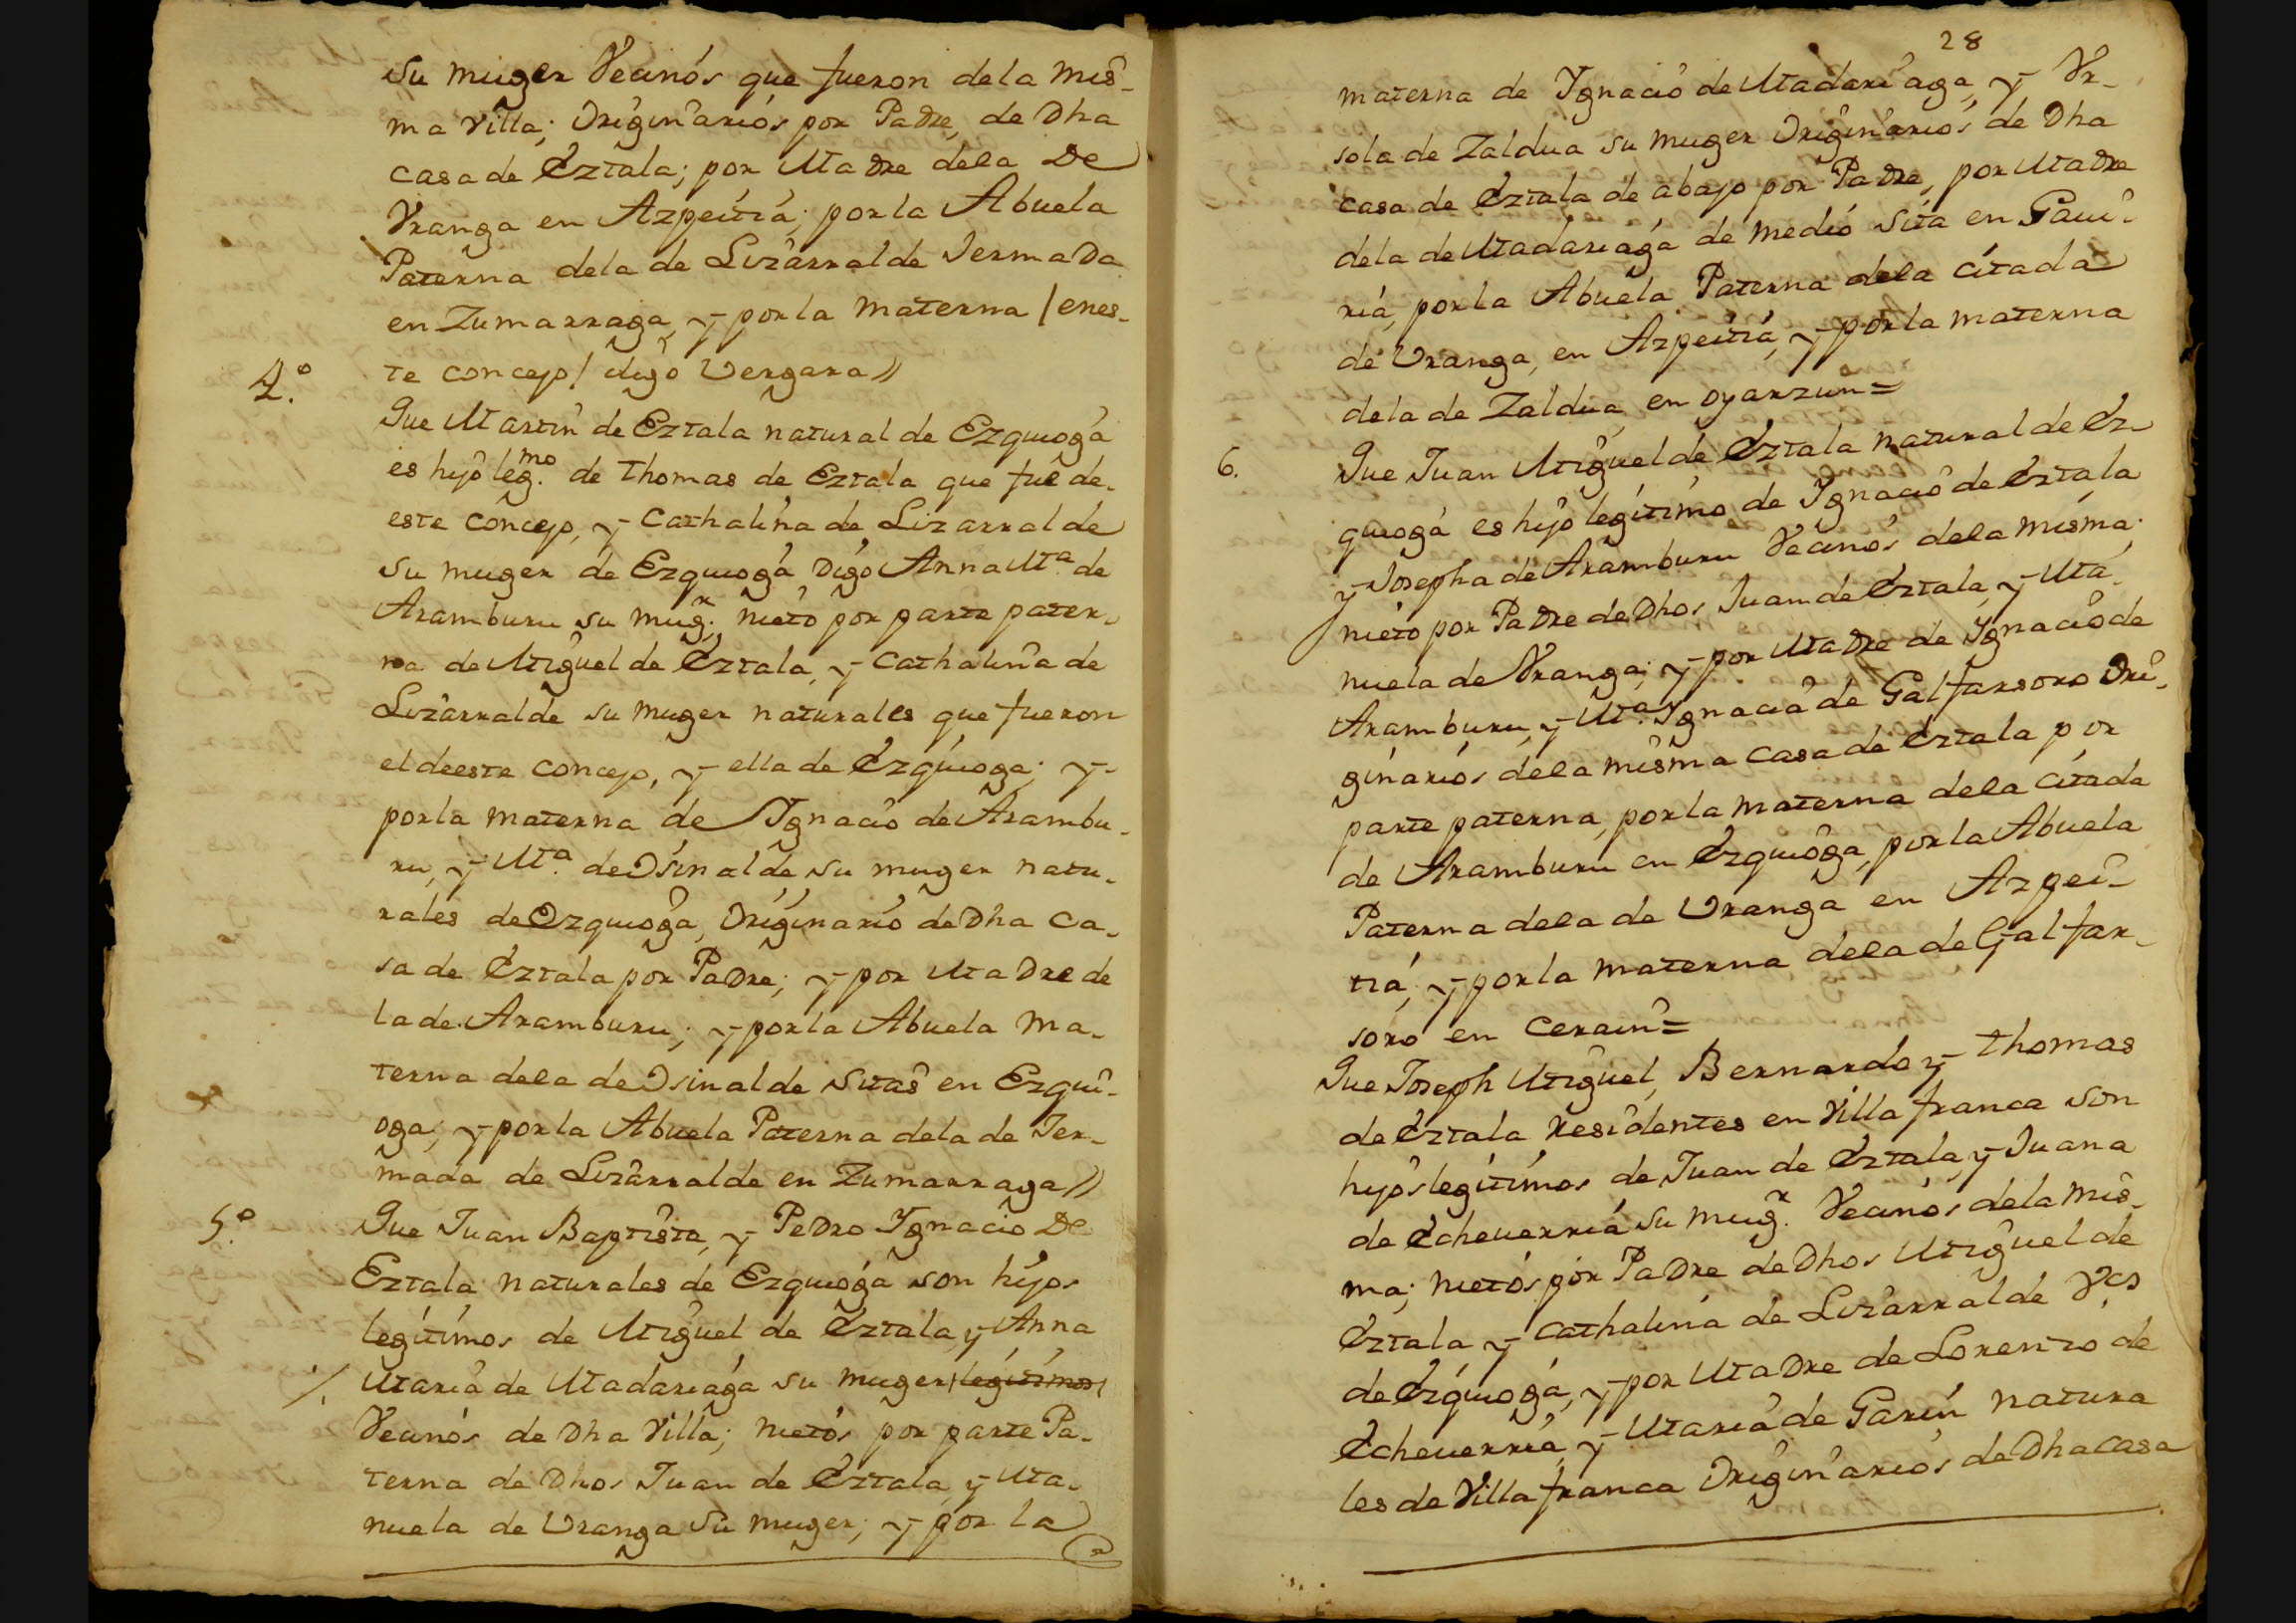 su muger Vecinós que fueron dela mis-
ma villa; Originarios por Padre, de Dha
casa de Eztala; por Madre dela De
Vranga en Azpeitia; por la Abuela
Paterna dela de Lizarralde Jermada
en Zumarraga, y por la materna /enes-
te concejo/ digo Vergara//
4.º
Que Martin de Eztala natural de Ezquioga
es hijo leg.mo de Thomas de Eztala que fue de
este concejo, y Cathalina de Lizarralde
su muger de Ezquioga Digo Anna Ma. de
Aramburu su mug.r; nieto por parte pater-
na de Miguel de Eztala, y Cathalina de
Lizarralde su muger naturales que fueron
el deeste concejo, y ella de Ezquioga; y
por la materna de Ignacio de Arambu-
ru, y Ma. de Osinalde su muger natu-
rales de Ezquioga, Originario de Dha ca-
sa de Eztala por Padre; y por Madre de
la de Aramburu; y por la Abuela ma-
terna dela de Osinalde sitas en Ezqui-
oga; y por la Abuela Paterna dela de Jer-
mada de Lizarralde en Zumarraga//
5.º
Que Juan Baptista, y Pedro Ignacio De
Eztala naturales de Ezquioga son hijos
legitimos de Miguel de Eztala, y Anna
Maria de Madariaga su muger /legitimos/
Vecinós de Dha Villa; nietos por parte Pa-
terna de Dhos Juan de Eztala, y Ma-
nuela de Vranga su muger; y por la
28
materna de Ygnacio de Madariaga, y Vr-
sola de Zaldua su muger Originarios de Dha
casa de Eztala de abajo por Padre, por Madre
dela de Madariaga de medio sita en Gavi-
ria, por la Abuela Paterna dela citada
de Vranga, en Azpeitia, y por la materna
dela de Zaldua en oyarzun=
6.
Que Juan Miguel de Eztala natural de Ez-
quioga es hijo legitimo de Ygnacio de Eztala
y Josepha de Aramburu Vecinos dela misma;
nieto por Padre de Dhos Juan de Eztala, y Ma-
nuela de Vranga; y por Madre de Ygnacio de
Aramburu, y Ma. Ygnacia de Galfarsoro Ori-
ginarios dela misma casa de Eztala por
parte paterna, por la materna dela citada
de Aramburu en Ezquioga, por la Abuela
Paterna dela de Vranga en Azpei-
tia, y por la materna dela de Galfar-
soro en Cerain=
Que Joseph Miguel, Bernardo y Thomas
de Eztala residentes en Villafranca son
hijos legitimos de Juan de Eztala, y Juana
de Echeverria su mug.r Vecinós dela mis-
ma; nietos por Padre de Dhos Miguel de
Eztala y Cathalina de Lizarralde Vcs
de Ezquioga, y por Madre de Lorenzo de
Echeverria, y Maria de Garin natura
les de Villafranca Originarios de Dha casa